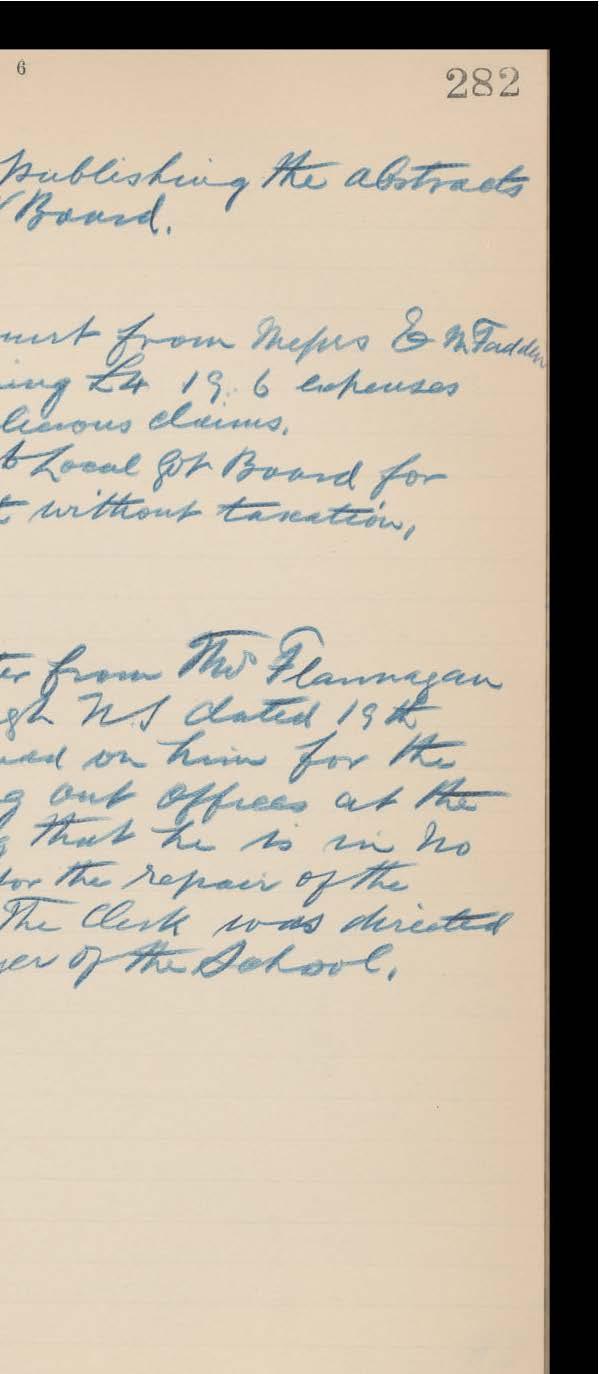 6
282
publishing the abstracts
Board.
from Messrs E McFadden
ing £4 19. 6 expenses
licious claims.
Local Gov Board for
without taxation,
from Thos Flannagan
gh NS dated 19th
on him for the
g out offices at the
that he is in no
for the repair of the
The Clerk was directed
of the School.